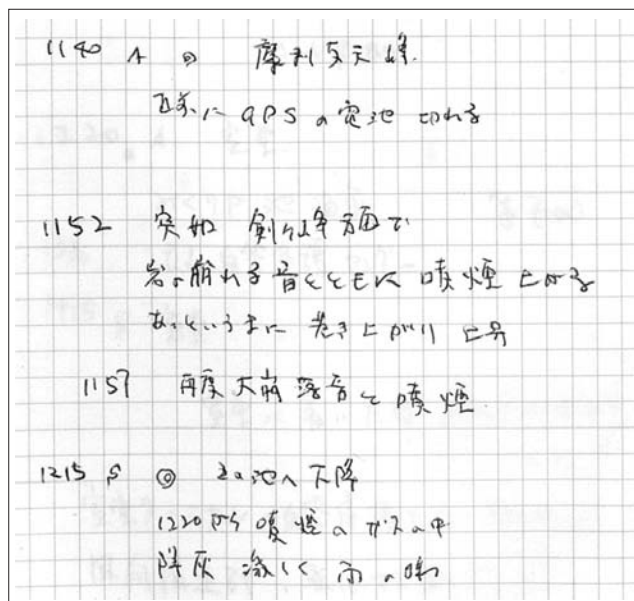 1140 A ◎ 摩利支天峰
直前に GPSの電池 切れる
1152 突如 剣ヶ峰方面で
岩の崩れる音とともに 噴煙上がる
あっというまに 巻き上がり 上昇
1157 再度大崩落音と噴煙
1215 S ◎ 二の池へ下降
1220から噴煙のガスの中
降灰 激しく 雨の